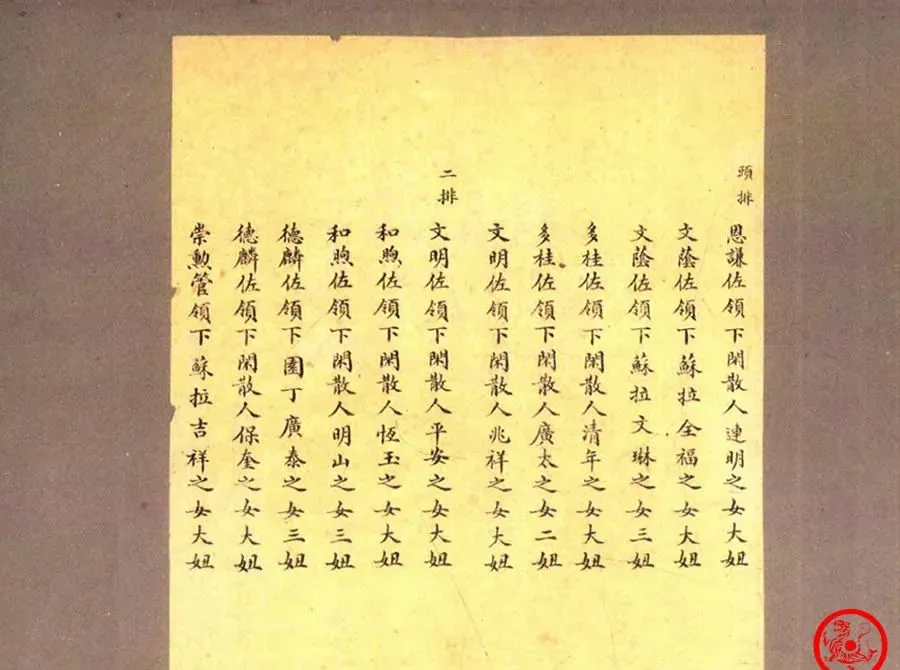 頭排
恩謙佐領下閑散人連明之女大妞
文蔭佐領下蘇拉全福之女大妞
文蔭佐領下蘇拉文琳之女三妞
多桂佐領下閑散人清年之女大妞
多桂佐領下閑散人廣太之女二妞
文明佐領下閑散人兆祥之女大妞
二排
文明佐領下閑散人平安之女大妞
和煦佐領下閑散人恆玉之女大妞
和煦佐領下閑散人明山之女三妞
德麟佐領下園丁廣泰之女三妞
德麟佐領下閑散人保奎之女大妞
崇勲管領下蘇拉吉祥之女大妞